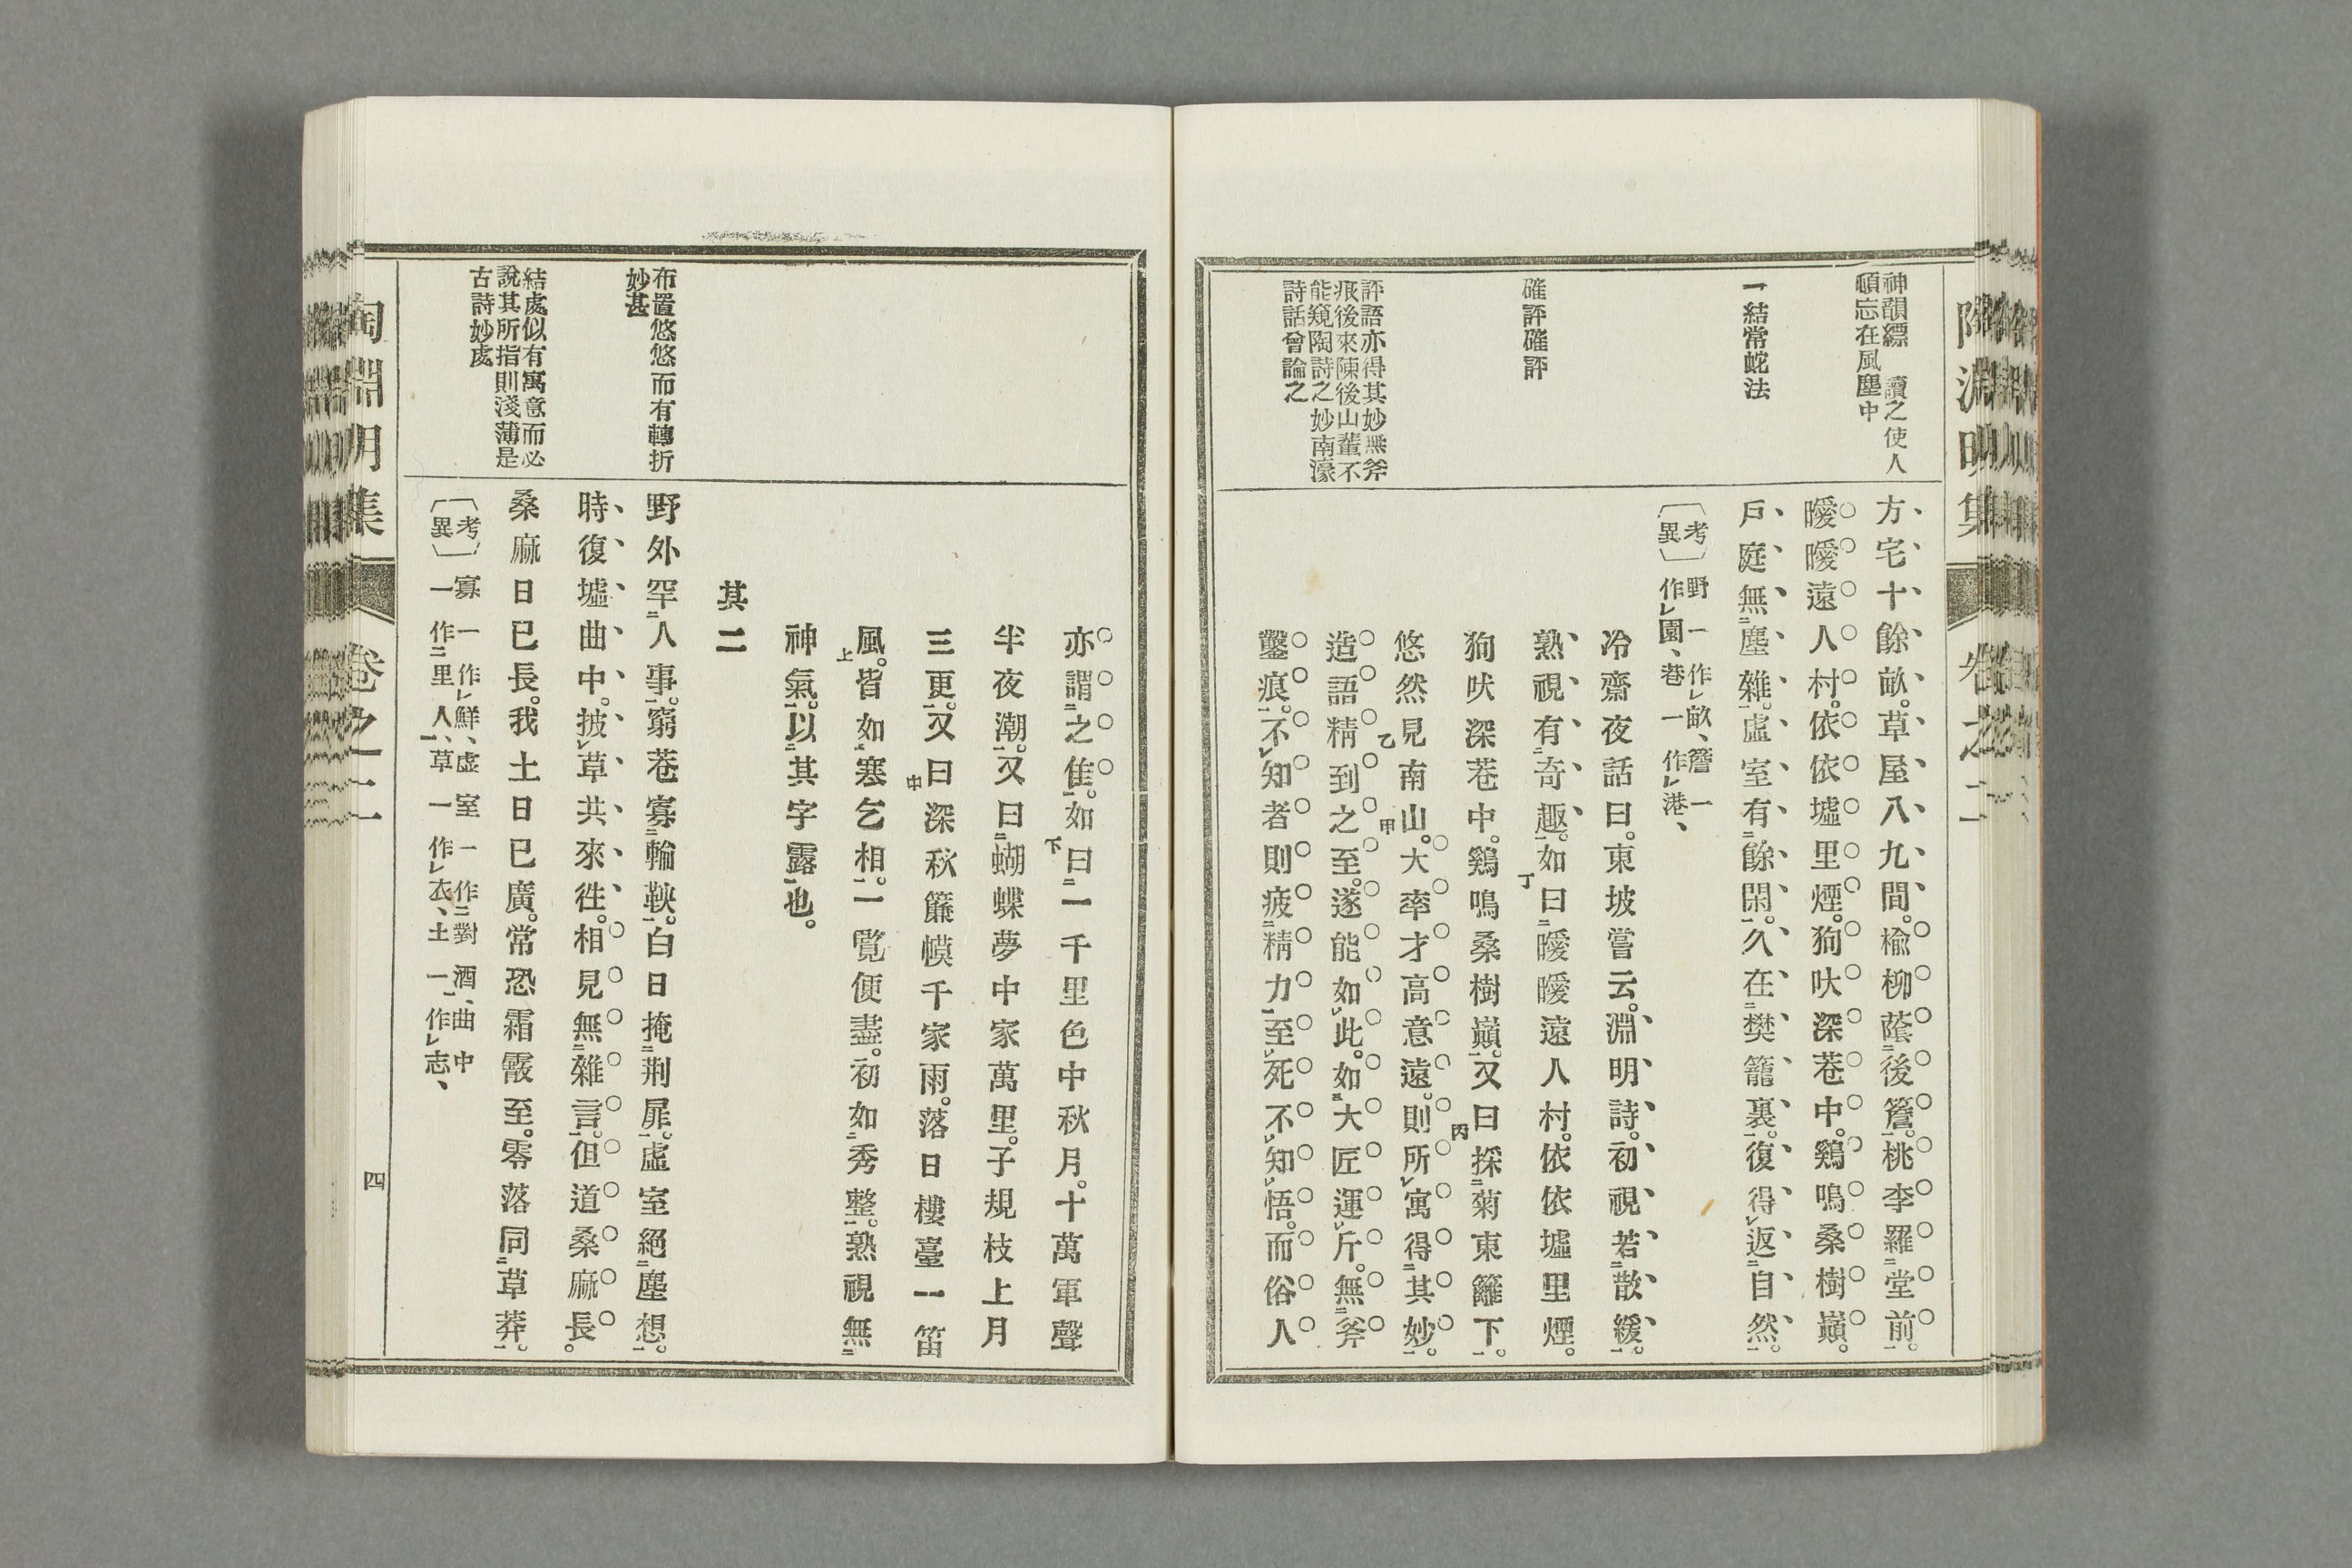 陶淵明集 卷之二
神韻縹 讀之使人
頓忘在風塵中
一結常蛇法
確評確評
評語亦得其妙無斧
痕後來陳後山輩不
能窺陶詩之妙南濠
詩話曾論之
方宅十餘畝。草屋八九間。楡柳蔭二後簷一。桃李羅二堂前一。
曖曖遠人村。依依墟里煙。狗吠深巷中。鷄鳴桑樹巓。
戶庭無二塵雜一。虛室有二餘閑一。久在二樊籠裏一。復得レ返二自然一。
〔考異〕野一作レ畝、簷一
作レ園、巷一作レ港、
冷齋夜話曰。東坡嘗云。淵明詩。初視若二散緩一。
熟視有二奇趣一。如丁曰二曖曖遠人村。依依墟里煙。
狗吠深巷中。鷄鳴桑樹巓一。又丙曰採二菊東籬下一。
悠然見乙南山甲。大率才高意遠。則所レ寓得二其妙一。
造語精到之至。遂能如レ此。如三大匠運レ斤。無二斧
鑿痕一。不レ知者則疲二精力一。至レ死不レ知レ悟。而俗人
亦謂二之佳一。如下曰二一千里色中秋月。十萬軍聲
半夜潮一。又曰二蝴蝶夢中家萬里。子規枝上月
三更一。又中曰深秋簾幙千家雨。落日樓臺一笛
風上。皆如二寒乞相一。一覽便盡。初如二秀整一。熟視無二
神氣一。以二其字露一也。
其二
布置悠悠而有轉折
妙甚
結處似有寓意而必
說其所指則淺薄是
古詩妙處
野外罕二人事一。窮巷寡二輪鞅一。白日掩二荆扉一。虛室絕二塵想一。
時復墟曲中。披レ草共來徃。相見無二雜言一。但道桑麻長。
桑麻日已長。我土日已廣。常恐霜霰至。零落同二草莽一。
〔考異〕寡一作レ鮮、虛室一作二對酒一、曲中
一作二里人一、草一作レ衣、土一作レ志、
陶淵明集 卷之二 四